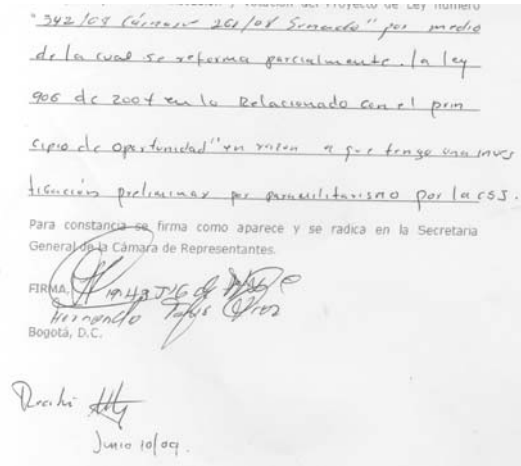 votación del Proyecto de Ley número
"342/09 Cámara 261/08 Senado" por medio
de la cual se reforma parcialmente la ley
906 de 2004 en lo Relacionado con el prin
cipio de oportunidad" en razon a que tengo una inves
tigación preliminar por paramilitarismo por la CSJ.
Para constancia se firma como aparece y se radica en la Secretaria
General de la Cámara de Representantes.
FIRMA,
Hernando
Bogotá, D.C.
Recibi
Junio 10/09.